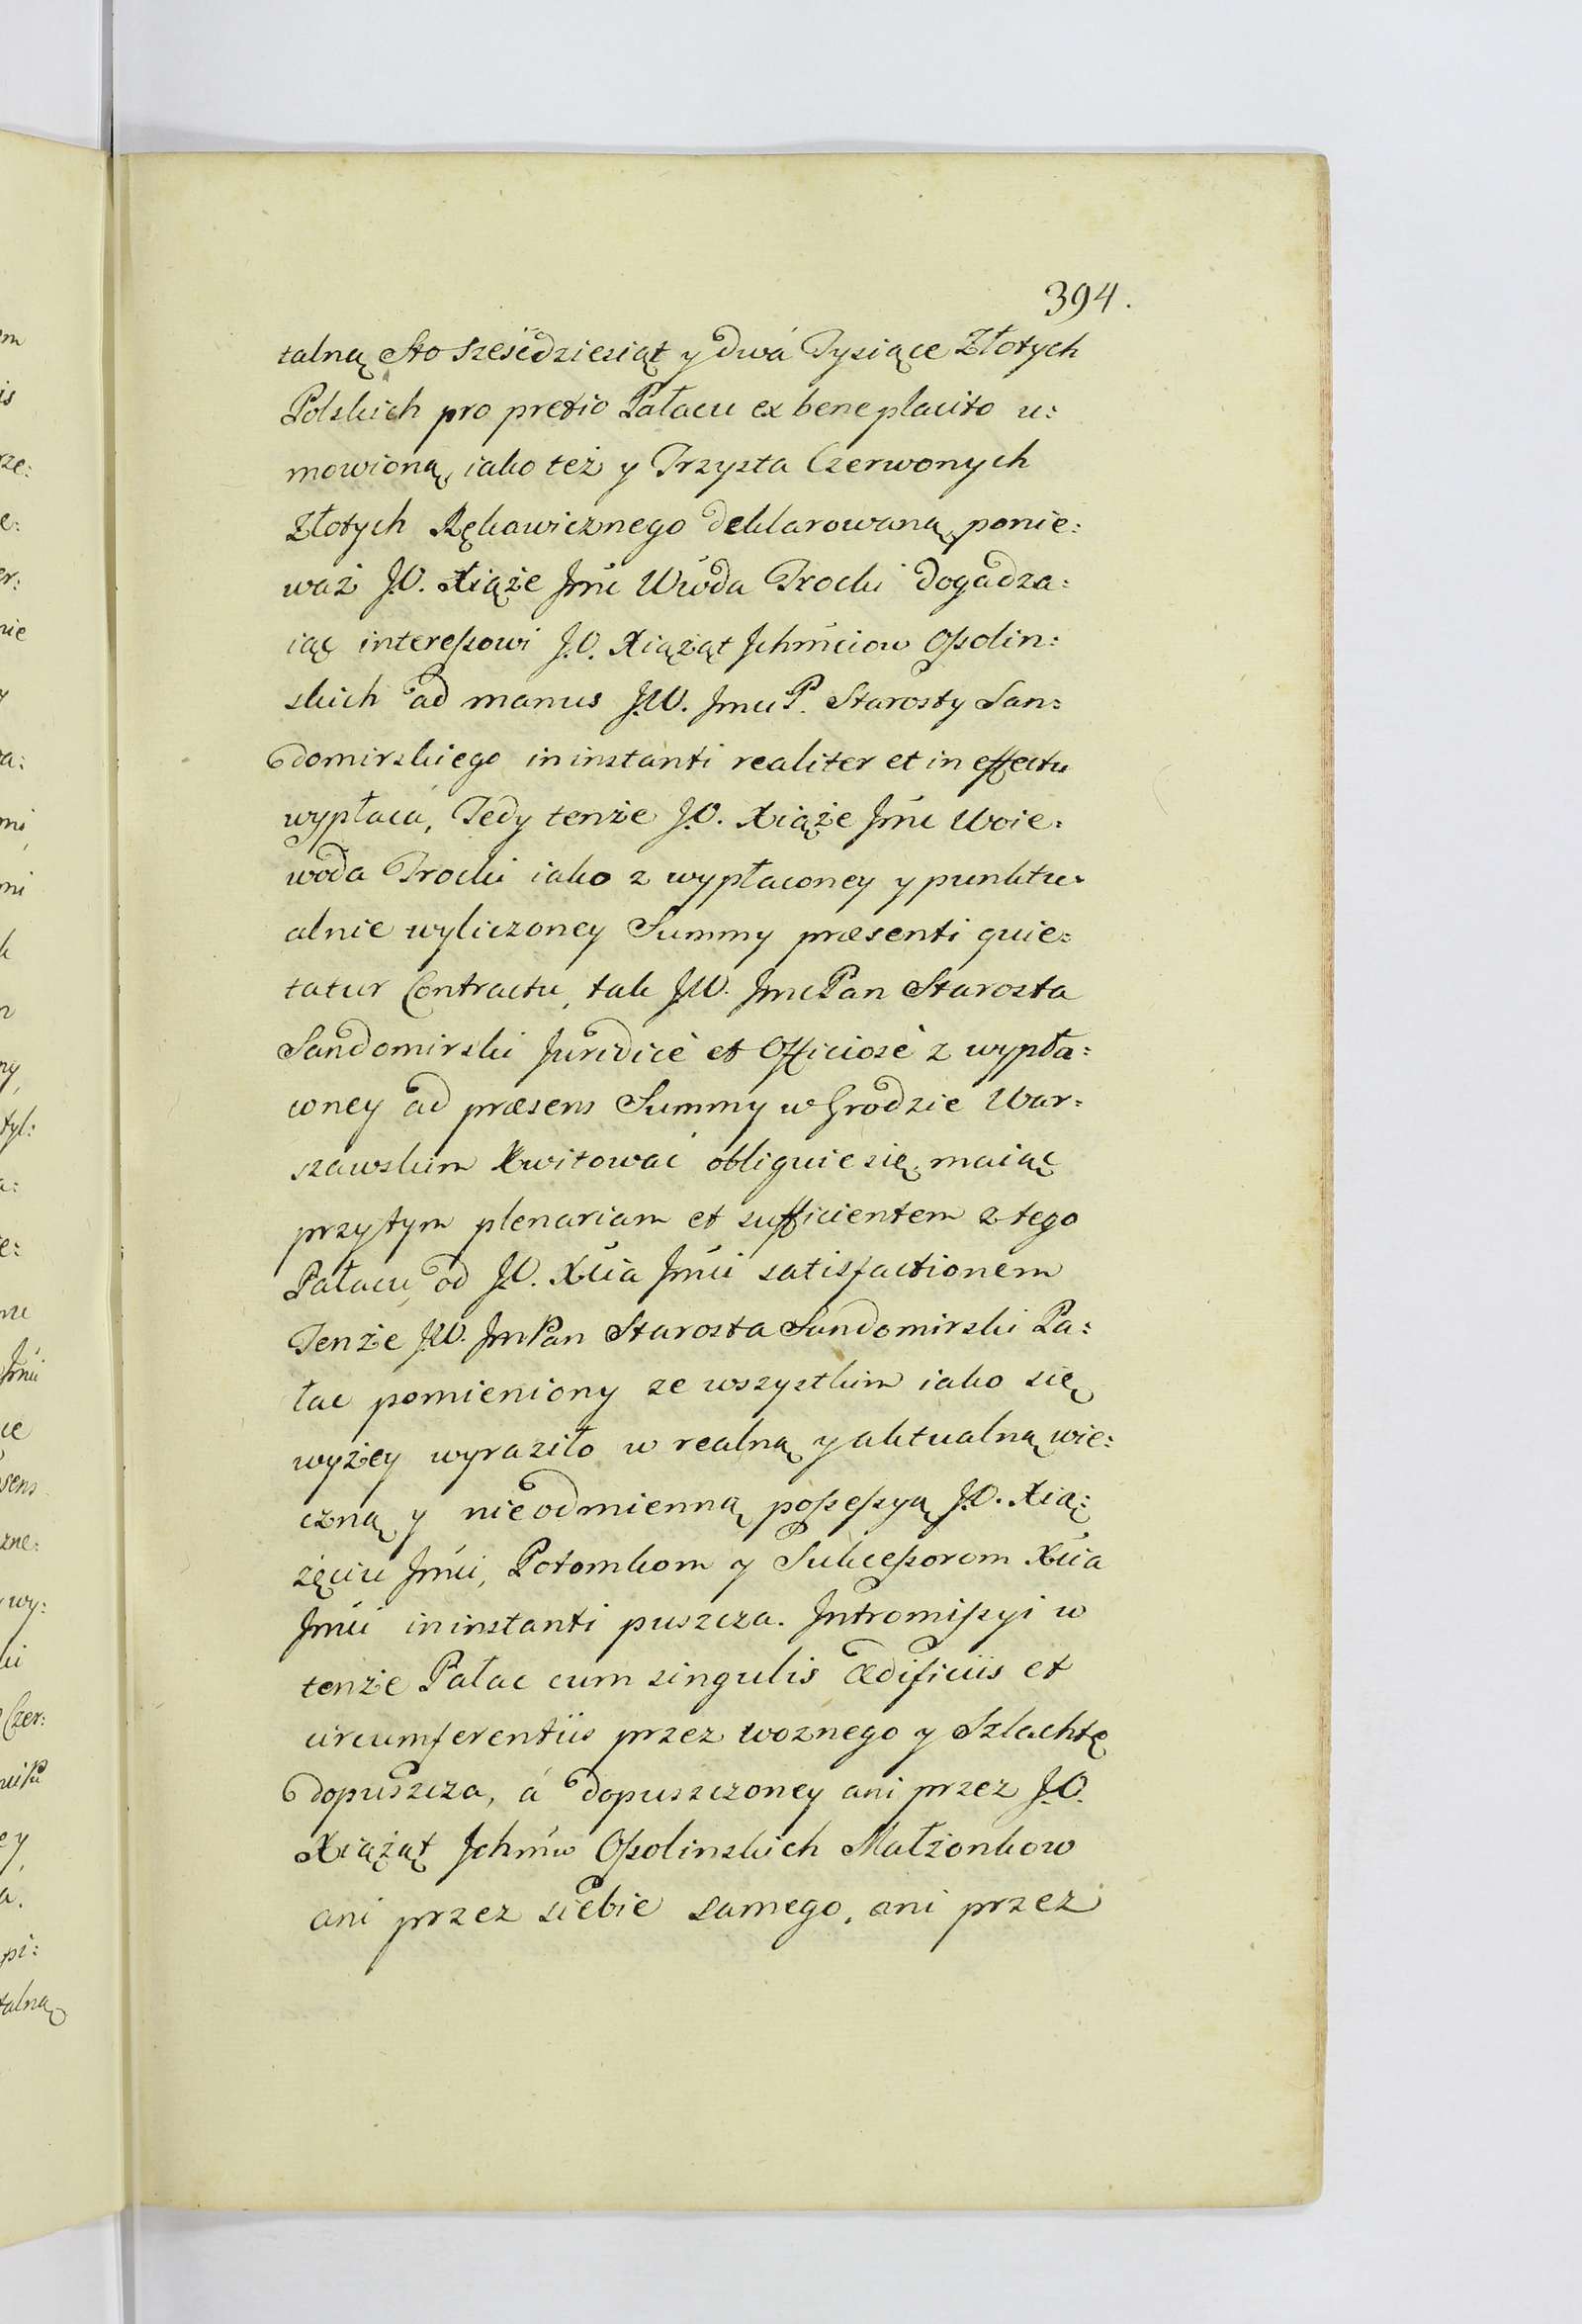 394.
talną Sto Sześćdziesiąt y dwá Tysiące Złotych
Polskich pro pretio Pałacu ex beneplacito u:
mowioną, iako też y Trzysta Czerwonych
Złotych Rękawicznego deklarowaną, ponie:
waż J.O. Xiąże Jmć Wwoda Trocki dogadza:
iąc interessowi J.O. Xiążąt Jchmciow Ossolin:
skich ad manus J.W. Jmci P. Starosty San:
domirskiego in instanti realiter et in effectu
wypłaca, Tedy tenże J.O. Xiąże Jmć Woie:
woda Trocki iako z wypłaconey y punktu:
alnie wyliczoney Summy præsenti quie:
tatur Contractu, tak J.W. Jmć Pan Starosta
Sandomirski Juridicè et Officiosè z wypła:
coney ad præsens Summy w Grodzie War:
szawskim Kwitować obliguie się, maiąc
przytym plenariam et sufficientem z tego
Pałacu, od J.O. Xcia Jmci satisfactionem
Tenże J.W. Jm Pan Starosta Sandomirski Pa:
łac pomieniony ze wszystkim iako się
wyżey wyraziło w realną y aktualną wie:
czną y nieodmienną possessyą J.O. Xią:
żęciu Jmci, Potomkom y Sukcessorom Xcia
Jmci in instanti puszcza. Jntromissyi w
tenże Pałac cum singulis ædificiis et
circumferentiis przez woznego y Szlachtę
dopuszcza, á dopuszczoney ani przez J.O.
Xiążąt Jchmw Ossolinskich Małżonkow
ani przez siebie samego, ani przez